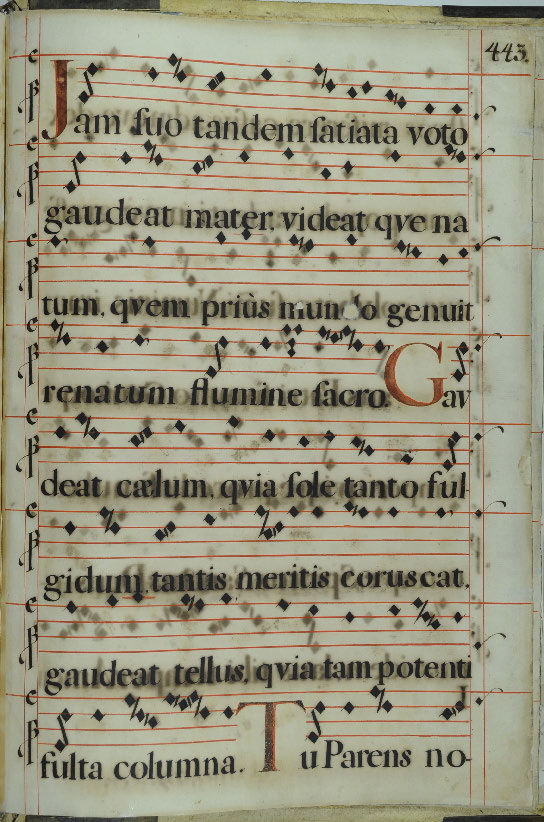 443.
Jam suo tandem satiata voto
gaudeat mater. videat qve na
tum. qvem priùs mundo genuit
renatum flumine sacro. Gav
deat cælum. qvia sole tanto ful
gidum. tantis meritis coruscat.
gaudeat tellus. qvia tam potenti
fulta columna. Tu Parens no-